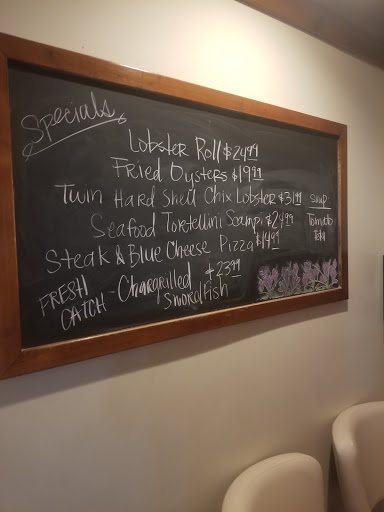 Specials
Lobster Roll $24.99
Fried Oysters $19.99
Twin Hard Shell Chix Lobster $31.99
Seafood Tortellini Scampi $24.99
Steak & Blue Cheese Pizza $14.99
FRESH CATCH - Chargrilled Swordfish $23.99
Soup:
Tomato